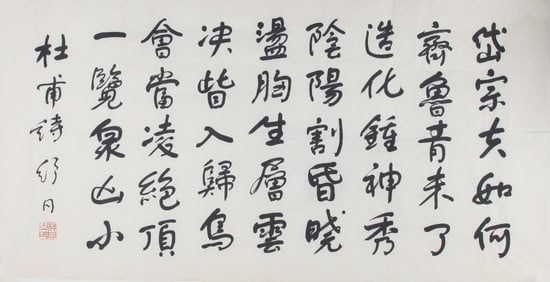 岱宗夫如何
齊魯青未了
造化鍾神秀
陰陽割昏曉
盪胸生層雲
决眥入歸鳥
會當凌絕頂
一覽衆山小
杜甫詩舒同